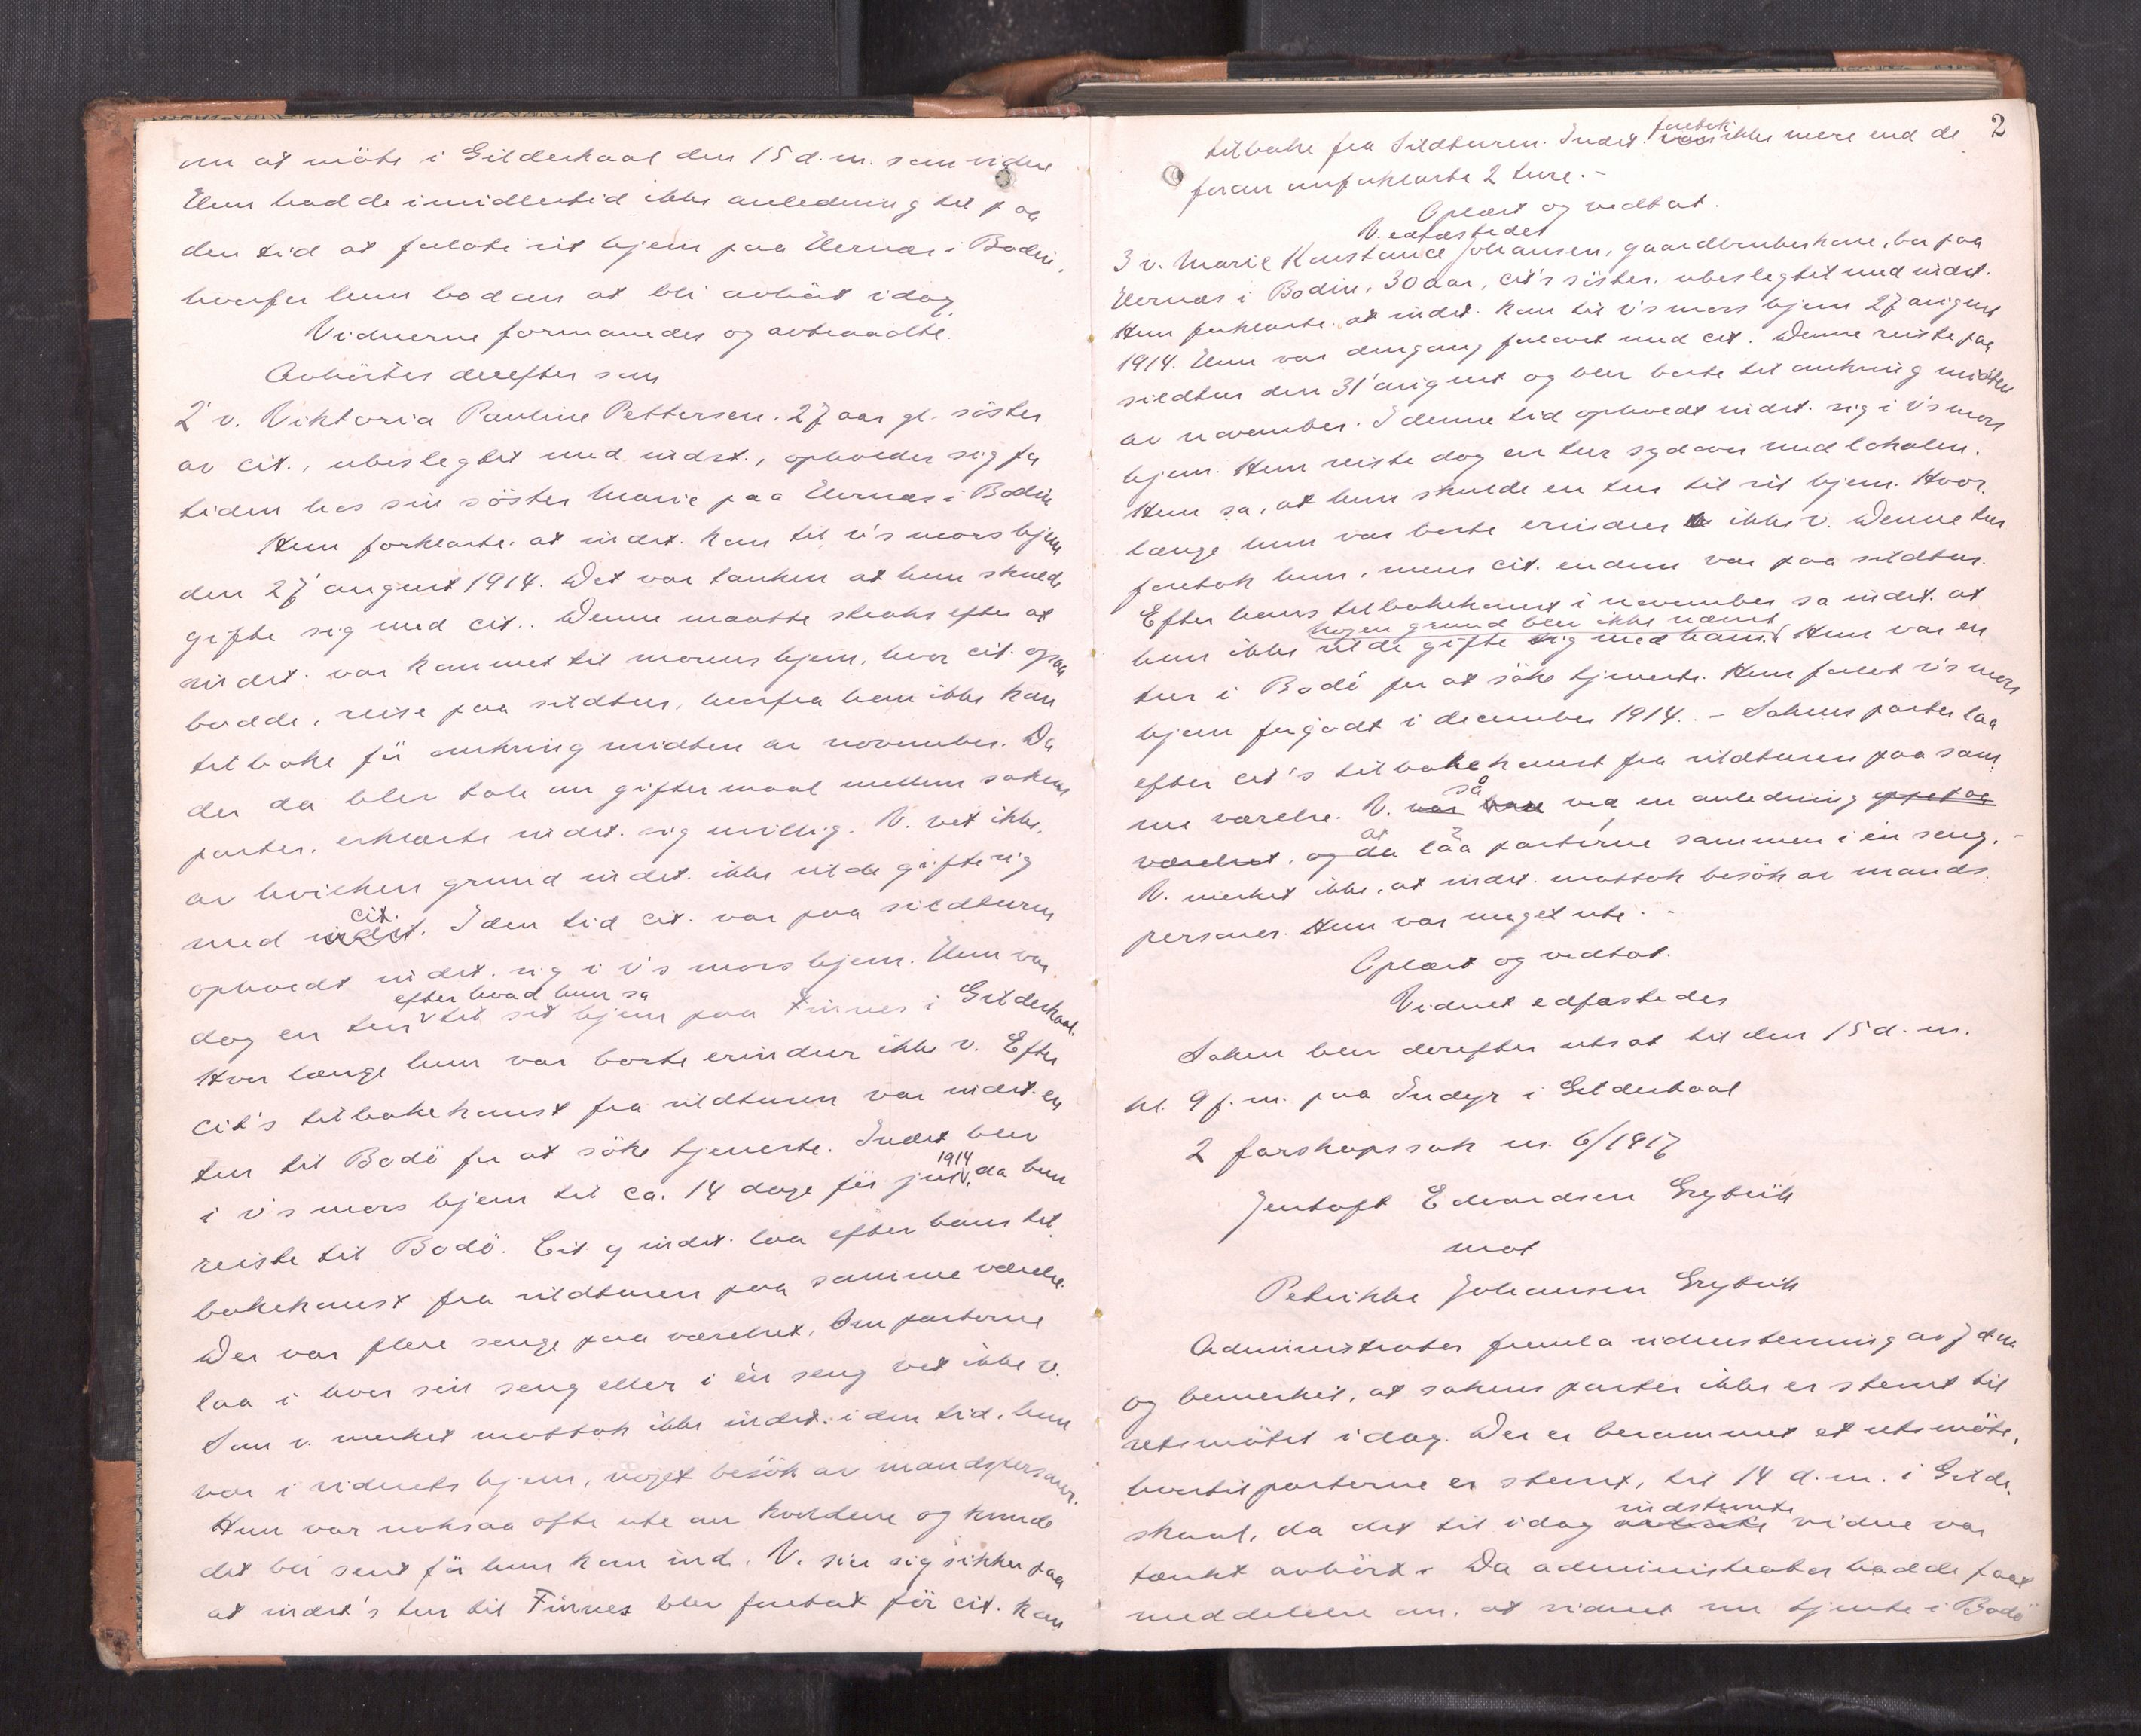 om at möte i Gildeskaal den 15 d. m. som vidne
Hun hadde imidlertid ikke anledning til paa
den tid at forlate sit hjem paa Hernæs i Bodin,
hvorfor hun bad om at bli avhört idag.
Vidnerne formanedes og avtraadte.
Avhörtes derefter som
2' v. Viktoria Pauline Pettersen. 27 aar gl. söster
av cit., ubeslegtet med indst., opholder sig for
tiden hos sin söster Marie paa Hernæs i Bodin
Hun forklarte. at indst. kom til v's mors hjem
den 27' august 1914. Det var tanken at hun skulde
gifte sig med cit.. Denne maatte straks efter at
indst. var kommet til morens hjem, hvor cit. ogsaa
bodde, reise paa sildtur, hvorfra han ikke kom
tilbake för omkring midten av november. Da
der da blev tale om giftermaal mellem sakens
parter. erklærte indst. sig uvillig. V. vet ikke,
av hvilken grund indst. ikke vilde gifte sig
med indst. cit. I den tid cit. var paa sildturen
opholdt indst. sig i v's mors hjem. Hun var
dog en tur efter hvad hun sa til sit hjem paa Finnes i Gildeskaal.
Hvor længe hun var borte erindrer ikke v. Efter
cit's tilbakekomst fra sildturen var indst. en
tur til Bodö for at söke tjeneste. Indst. blev
i v's mors hjem til ca. 14 dage för jul 1914, da hun
reiste til Bodö. Cit. og indst. laa efter hans til
bakekomst fra sildturen paa samme værelse.
Der var flere senge paa værelset. Om parterne
laa i hver sin seng eller i én seng vet ikke v.
Som v. merket mottok ikke indst. i den tid. hun
var i vidnets hjem, noget besök av mandspersoner.
Hun var noksaa ofte ute om kveldene og kunde
det bli sent för hun kom ind. V. sier sig sikker paa
at indst's tur til Finnes blev foretat för cit. kom
2
tilbake fra sildturen. Indst. var foretok ikke mere end de
foran omforklarte 2 ture.-
Oplæst og vedtat.
V. edfæstedes
3 v. Marie Konstance Johansen, gaardbrukerkone, bor paa
Hernæs i Bodin, 30 aar, cit's söster. ubeslegtet med indst.
Hun forklarte. at indst. kom til v's mors hjem 27 august
1914. Hun var dengang forlovet med cit. Denne reiste paa
sildtur den 31' august og blev borte til omkring midten
av november. I denne tid opholdt indst. sig i v's mors
hjem. Hun reiste dog en tur sydover med lokalen.
Hun sa, at hun skulde en tur til sit hjem. Hvor
længe hun var borte erindrer ikke v. Denne tur
foretok hun, mens cit. endnu var paa sildtur.
Efter hans tilbakekomst i november sa indst. at
hun ikke vilde gifte sig med ham. nogen grund blev ikke nævnt Hun var en
tur i Bodö for at söke tjeneste. Hun forlot v's mors
hjem forgodt i december 1914. - Sakens parter laa
efter cit's tilbakekomst fra sildturen paa sam
me værelse. V. var så ved en anledning oppe paa
værelset, og da at laa parterne sammen i én seng. -
V. merket ikke, at indst. mottok besök av mands
personer. Hun var meget ute. -
Oplæst og vedtat.
Vidnet edfæstedes
Saken blev derefter utsat til den 15 d. m.
kl. 9 f. m. paa Indyr i Gildeskaal
2 farskapssak nr. 6/1917
Jentoft Edvardsen
mot
Petrikke Johansen
Administrator fremla vidnestevning av 7 d. m
og bemerket, at sakens parter ikke er stevnt til
retsmötet idag. Der er berammet et retsmöte,
hvortil parterne er stevnt, til 14 d. m. i Gilde
skaal, da det til idag indstevnte vidne var
tænkt avhört. Da administrator hadde faat
meddelelse om, at vidnet nu tjente i Bodö